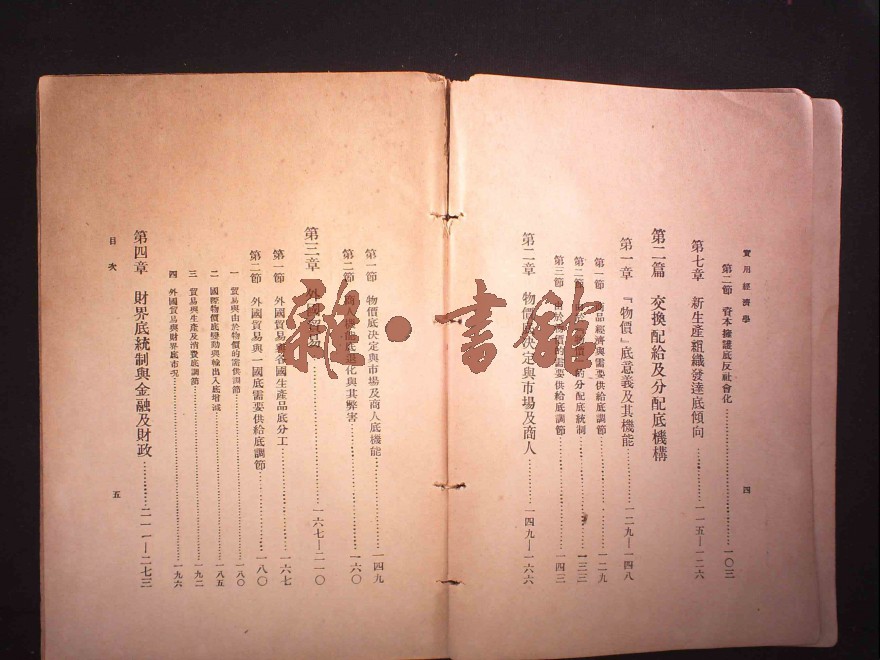 實用經濟學
四
第二節 資本擁護底反社會化……一〇三
第七章 新生產組織發達底傾向……一一五—一二六
第二篇 交換配給及分配底機構
第一章 「物價」底意義及其機能……一二九—一四八
第一節 商品經濟與需要供給底調節……一二九
第二節 分配底統制……一三三
第三節 由於 價的需要供給底調節……一四三
第二章 物價底決定與市場及商人……一四九—一六六
第一節 物價底決定與市場及商人底機能……一四九
第二節 商人機能底退化與其弊害……一六〇
第三章 外國貿易……一六七—二一〇
第一節 外國貿易和各國生產品底分工……一六七
第二節 外國貿易與一國底需要供給底調節……一八〇
一 貿易與由於物價的需供調節……一八〇
二 國際物價底變動與輸出入底增減……一八五
三 貿易與生產及消費底調節……一九二
四 外國貿易與財界底市況……一九六
第四章 財界底統制與金融及財政……二一一—二七三
目次
五
雜·書館